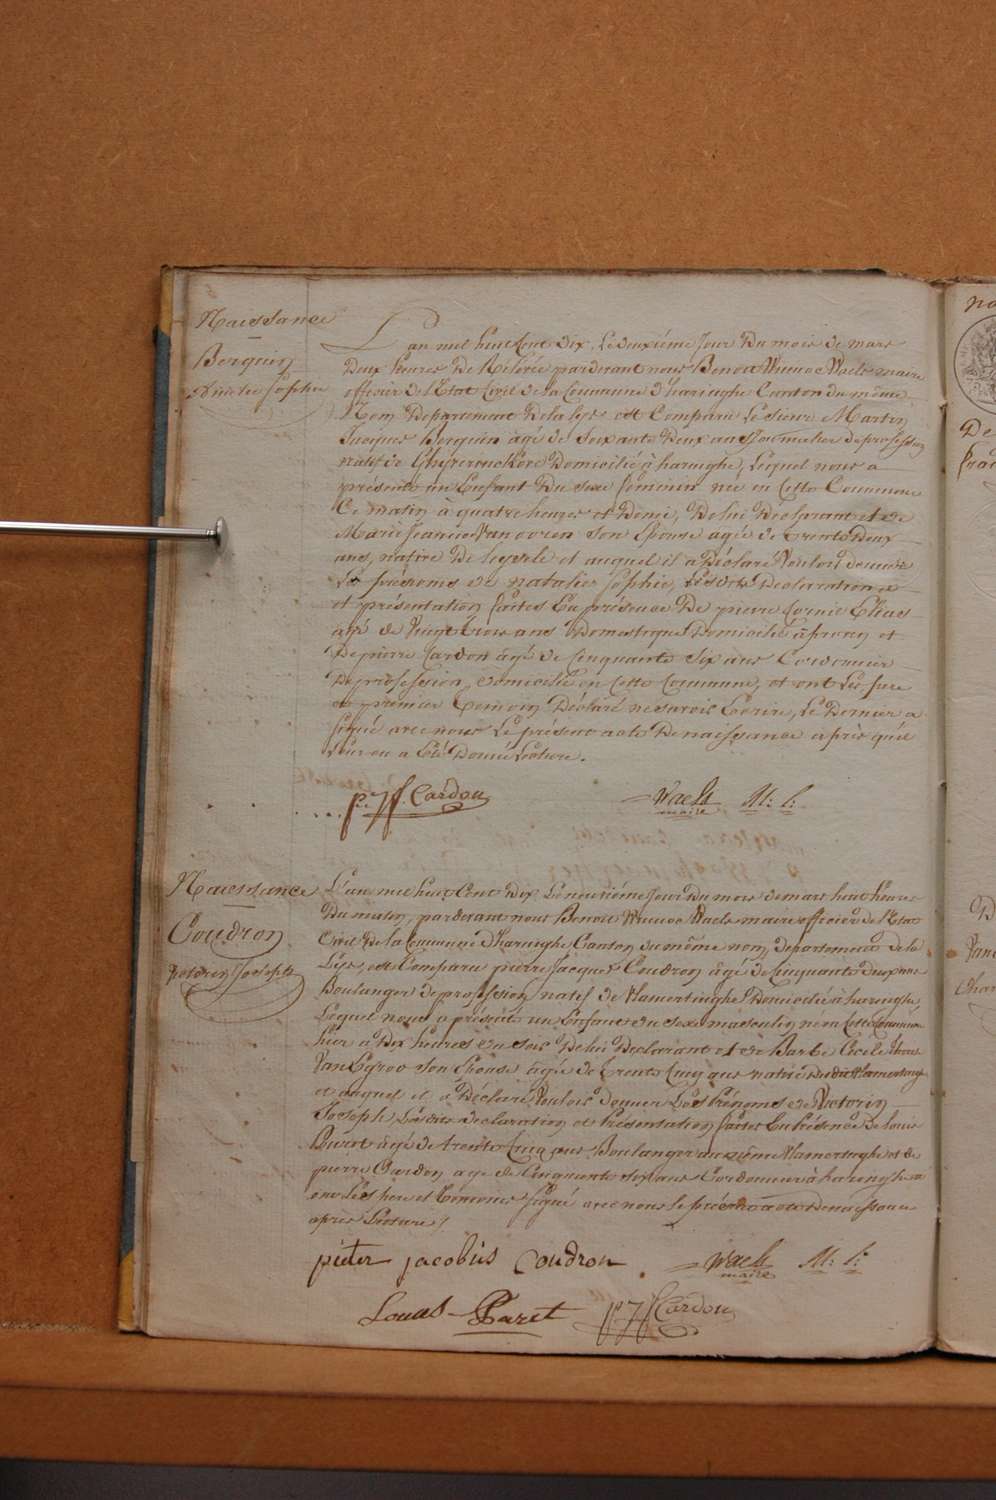 Naissance
Berquin
Natalie Sophie
L'an mil huit Cent dix, Le deuxième Jour Du mois de mars
Deux heures De Relevée pardevant nous Benoit Winoc Waels maire
officier de l'Etat Civil de la Commune d'haringhe Canton du même
Nom Departement De la lys est Comparu Le sieur Martin
Jacques Berquin âgé de Soixante Deux ans Journalier de profession
natif de Ghyverinckove Domicilié à haringhe, Lequel nous a
présenté un Enfant Du sexe feminin né en Cette Commune
Ce matin à quatre heures et Demie, De lui Declarant et de
Marie Jeanne Van ooren Son Epouse agée de Trente Deux
ans, native De leysele et auquel il a Déclaré Vouloir donner
Les prénoms de natalie Sophie, Lesdites Declaration
et présentation faites En présence De pierre Cornil Elias
agé de Vingt trois ans Domestique Domicilié à proven et
De pierre Cardon âgé de Cinquante Six ans Cordonnier
De profession, domicilié en Cette Commune, et ont Les pere
et premier Temoin Déclaré ne savoir Ecrire, Le Dernier a
signé avec nous Le présent acte De naissance après qu'il
Leur en a Eté Donné Lecture.
p: J f. Cardon
Waels M: l:
maire
Naissance
Coudron
Victorin Joseph
L'an mil huit Cent Dix Le neuvième Jour Du mois de mars huit heures
Du matin, pardevant nous Benoit Winoc Waels maire officier de l'Etat
Civil De la Commune d'haringhe Canton du même nom, departement de la
Lys, est Comparu pierre Jacques Coudron âgé de cinquante deux ans
Boulanger de profession natif de Vlamertinghe Domicilié à haringhe
Lequel nous a présenté un Enfant du sexe masculin né en Cette Commune
hier à Dix heures du soir De lui Declarant et de Barbe Cecile
Van Egroo son Epouse âgée de Trente Cinq ans native dudit Vlamertinghe
et auquel il a Déclaré Vouloir donner Les Prénoms de Victorin
Joseph Lesdites declaration et Présentation faites En Présence De louis
Parret âgé de trente Cinq ans Boulanger au même Vlamertinghe et de
pierre Cardon agé de Cinquante six ans Cordonnier à haringhe
ont Les pere et temoins signé avec nous le présent acte De naissance
après Lecture /.
pieter jacobus Coudron
Waels M: l:
maire
Louis Paret
p: J f Cardon